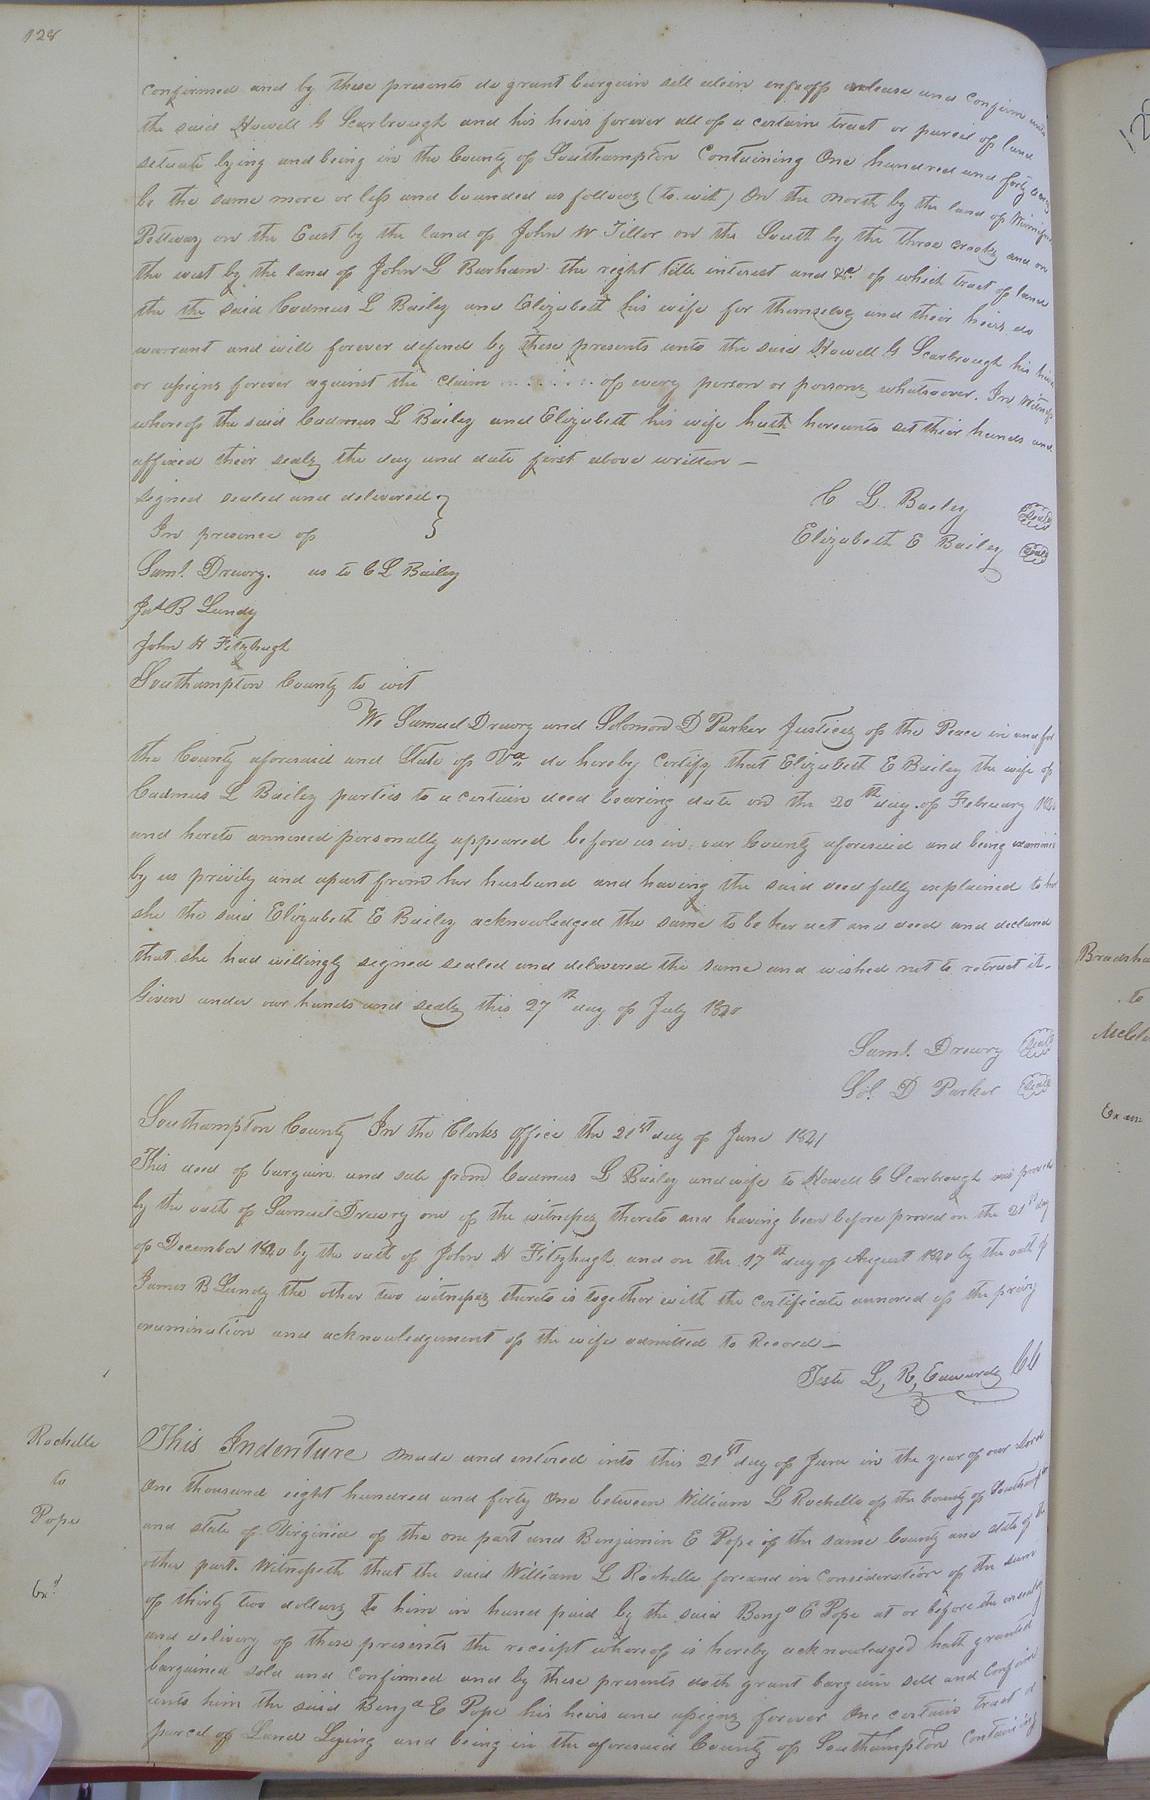 128
confirmed and by these presents do grant bargain sell alien enfeoff release and confirm unto
the said Howell G Scarbrough and his heirs forever all of a certain tract or parcel of land
situate lying and being in the County of Southampton Containing One hundred and forty
be the same more or less and bounded as follows (to wit) On the North by the land of
on the East by the land of John W Tiller on the South by the three creeks and on
the west by the land of John L Barham the right title interest and &c. of which tract of land
the the said Cadmus L Bailey and Elizabeth his wife for themselves and their heirs do
warrant and will forever defend by these presents unto the said Howell G Scarbrough his heirs
or assigns forever against the claim of every person or persons whatsoever. In Witness
whereof the said Cadmus L Bailey and Elizabeth his wife hath hereunto set their hands and
affixed their seals the day and date first above written –
Signed sealed and delivered }
In presence of
C L. Bailey Seal
Elizabeth E Bailey Seal
Saml. Drewry. as to C L Bailey
Jas B Lundy
John H Fitzhugh
Southampton County to wit
We Samuel Drewry and Solomon D Parker Justices of the Peace in and for
the County aforesaid and State of Va do hereby certify that Elizabeth E Bailey the wife of
Cadmus L Bailey parties to a certain deed bearing date on the 20th day of February 1840
and hereto annexed personally appeared before us in our County aforesaid and being examined
by us privily and apart from her husband and having the said deed fully explained to her
she the said Elizabeth E Bailey acknowledged the same to be her act and deed and declared
that she had willingly signed sealed and delivered the same and wished not to retract it.
Given under our hands and seals this 27th day of July 1840
Saml. Drewry Seal
Sol. D Parker Seal
Southampton County In the Clerks Office the 21st day of June 1841
This deed of bargain and sale from Cadmus L Bailey and wife to Howell G Scarbrough was proved
by the oath of Samuel Drewry one of the witnesses thereto and having been before proved on the 21st day
of December 1840 by the oath of John H Fitzhugh and on the 17th day of August 1840 by the oath of
James B Lundy the other two witnesses thereto is together with the certificate annexed of the privy
examination and acknowledgement of the wife admitted to Record –
Teste L, R, Edwards CC
Rochelle
to
Pope
Exd
This Indenture made and entered into this 21st day of June in the year of our Lord
One thousand eight hundred and forty One between William L Rochelle of the County of Southampton
and state of Virginia of the one part and Benjamin E Pope of the same County and state of the
other part. Witnesseth that the said William L Rochelle for and on Consideration of the sum
of thirty two dollars to him in hand paid by the said Benja E Pope at or before the ensealing
and delivery of these presents the receipt whereof is hereby acknowledged hath granted
bargained sold and confirmed and by these presents doth grant bargain sell and confirm
unto him the said Benja E Pope his heirs and assigns forever One certain tract or
parcel of Land Lying and being in the aforesaid County of Southampton containing
to